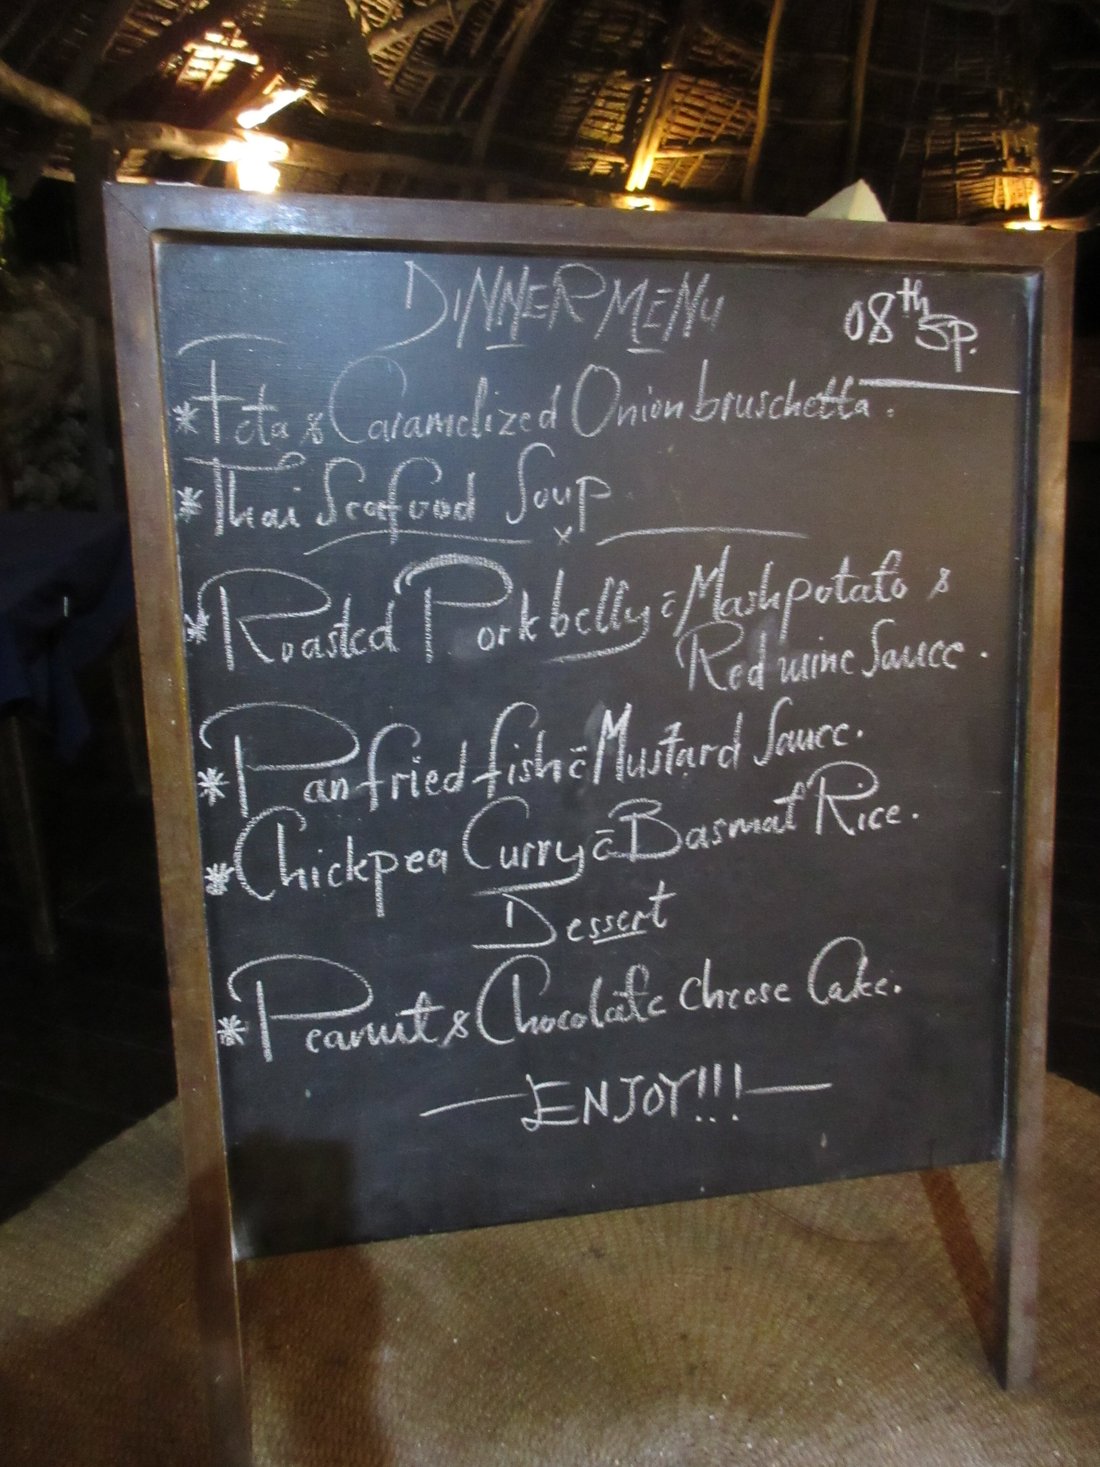 DINNER MENU
08th SP.
* Feta & Caramelized Onion bruschetta.
* Thai Seafood Soup
x
* Roasted Pork belly c̄ Mash potato &
Red wine Sauce.
* Pan fried fish c̄ Mustard Sauce.
* Chickpea Curry c̄ Basmat Rice.
Dessert
* Peanut & Chocolate cheese Cake.
— ENJOY!!! —